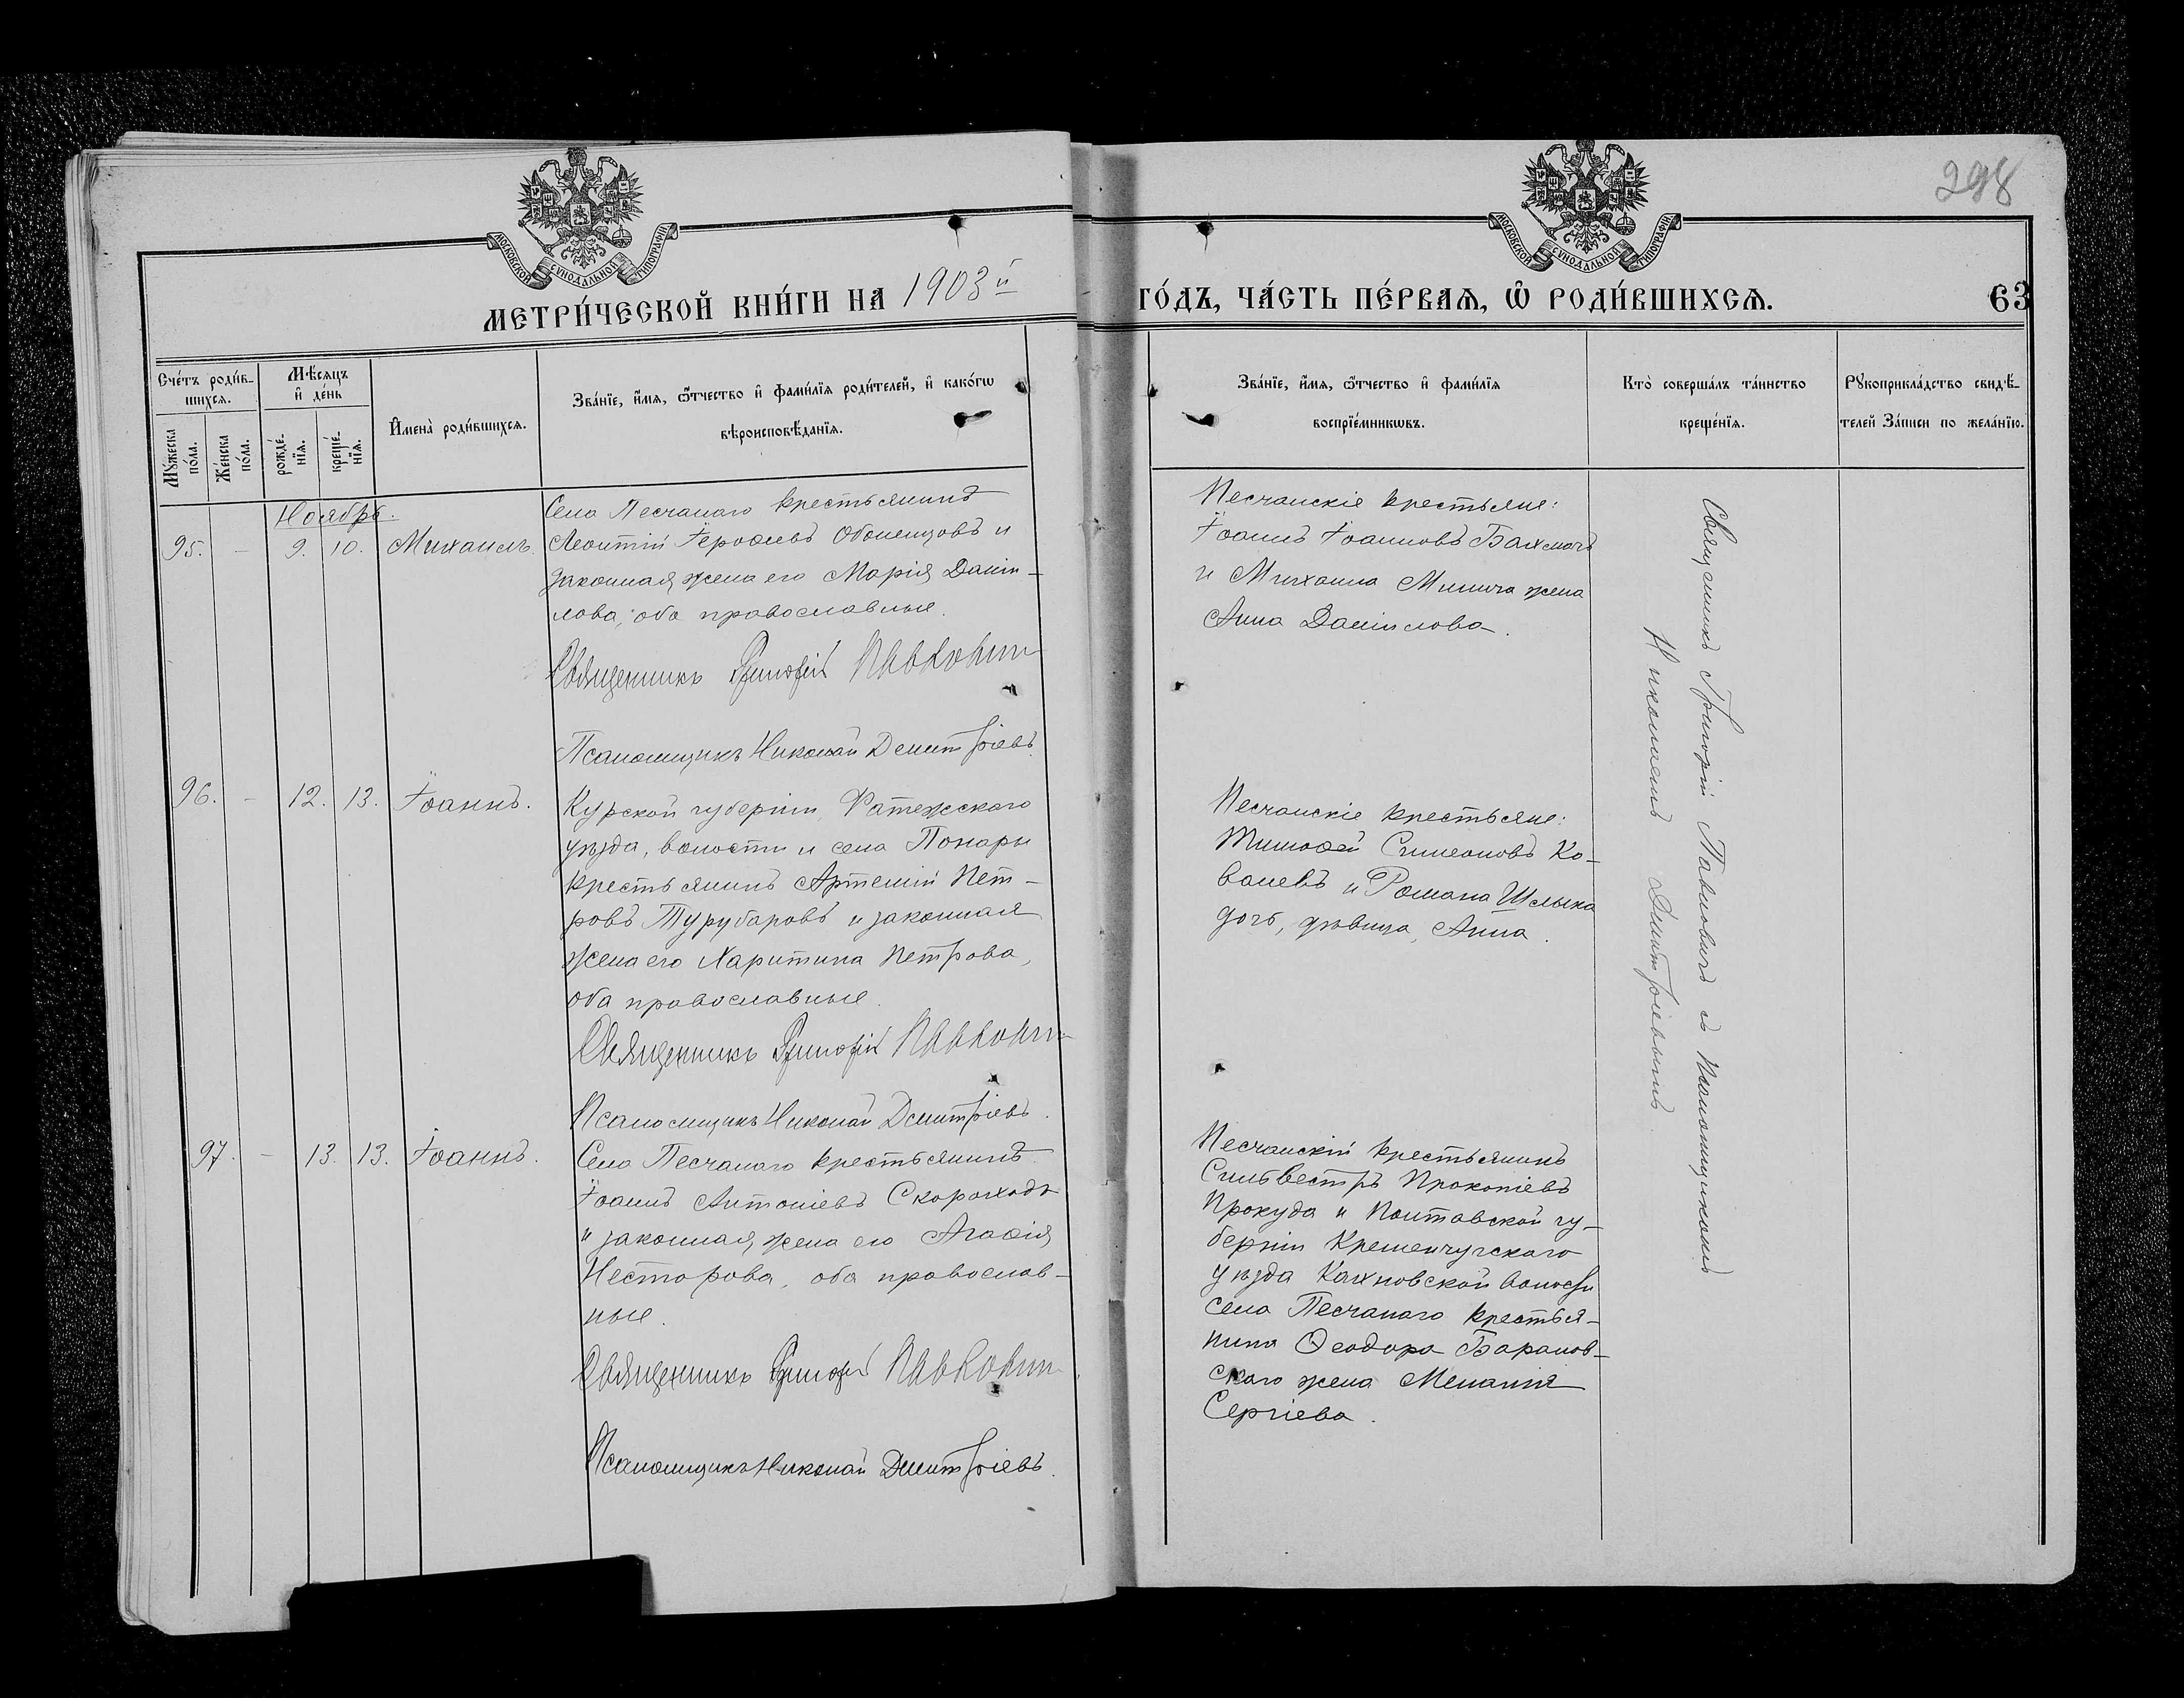 298
МОСКОВСКОЙ СѴНОДАЛЬНОЙ ТИПОГРАФІИ
МОСКОВСКОЙ СѴНОДАЛЬНОЙ ТИПОГРАФІИ
МЕТРИ́ЧЕСКОЙ КНИ́ГИ НА 1903й
ГО́ДЪ, ЧА́СТЬ ПЕ́РВАѦ, Ѡ҆ РОДИ́ВШИХСѦ.
63
Сче́тъ роди́в-
шихсѧ.
Мꙋ́жеска
по́ла.
Же́нска
по́ла.
Мѣ́сѧцъ
и҆ де́нь
рожде́-
нїѧ.
креще́-
нїѧ.
И҆мена̀ роди́вшихсѧ.
Зва́нїе, и҆́мѧ, ѻ҆́тчество и҆ фами́лїѧ роди́телей, и҆ како́гѡ
вѣроисповѣ́данїѧ.
Зва́нїе, и҆́мѧ, ѻ҆́тчество и҆ фами́лїѧ
воспрїе́мникѡвъ.
Кто̀ соверша́лъ та́инство
креще́нїѧ.
Рꙋкоприкла́дство свидѣ́-
телей За́писи по жела́нїю.
Ноябрь.
95. - 9. 10. Михаилъ.
Села Песчанаго крестьянинъ
Леонтій Іероѳеевъ Обоненцовъ и
законная жена его Марія Даніи-
лова, оба православные.
Священникъ Григорій Павловичъ
Псаломщикъ Николай Дмитріевъ.
Песчанскіе крестьяне:
Іоаннъ Іоанновъ Бахмачъ
и Михаила Минича жена
Анна Даніилова.
96. - 12. 13. Іоаннъ.
Курской губерніи, Фатежскаго
уѣзда, волости и села Поныри
крестьянинъ Артемій Пет-
ровъ Турубаровъ и законная
жена его Харитина Петрова,
оба православные.
Священникъ Григорій Павловичъ
Псаломщикъ Николай Дмитріевъ.
Песчанскіе крестьяне:
Тимоѳей Симеоновъ Ко-
валевъ и Романа Шлыка
дочь, дѣвица, Анна.
97. - 13. 13. Іоаннъ.
Села Песчанаго крестьянинъ
Іоаннъ Антоніевъ Скороходъ
и законная жена его Агаѳія
Несторова, оба православ-
ные.
Священникъ Григорій Павловичъ
Псаломщикъ Николай Дмитріевъ.
Песчанскій крестьянинъ
Сильвестръ Прокопіевъ
Прокуда и Полтавской гу-
берніи Кременчугскаго
уѣзда Кахновской волости
села Песчанаго крестья-
нина Ѳеодора Баранов-
скаго жена Меланія
Сергіева.
Священникъ Григорій Павловичъ съ псаломщикомъ
Николаемъ Дмитріевымъ.